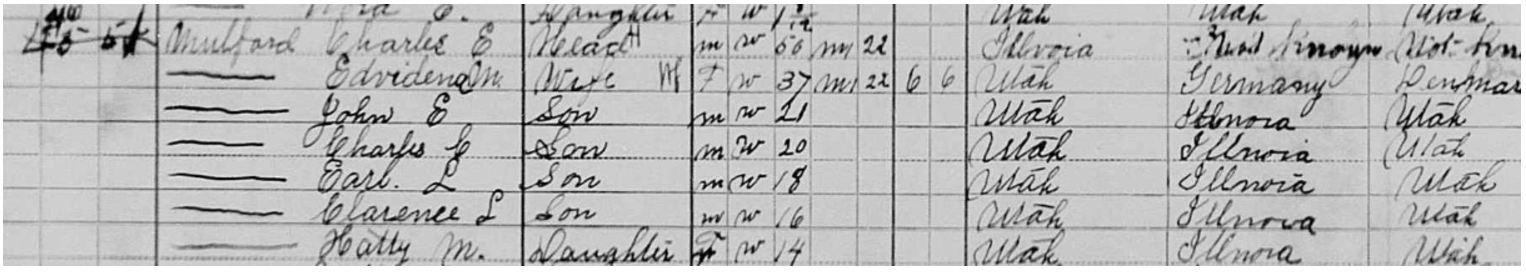 E. Daughter F W 1 Utah Utah Utah
Mulford Charles E Head m W 50 m1 22 Illnoia Not Known Not
Edvidena M. Wife F W 37 m1 22 6 6 Utah Germany Denmar
John E Son m W 21 Utah Illnoia Utah
Charles C Son m W 20 Utah Illnoia Utah
Earl. L Son m W 18 Utah Illnoia Utah
Clarence L Son m W 16 Utah Illnoia Utah
Hatty M. Daughter F W 14 Utah Illnoia Utah